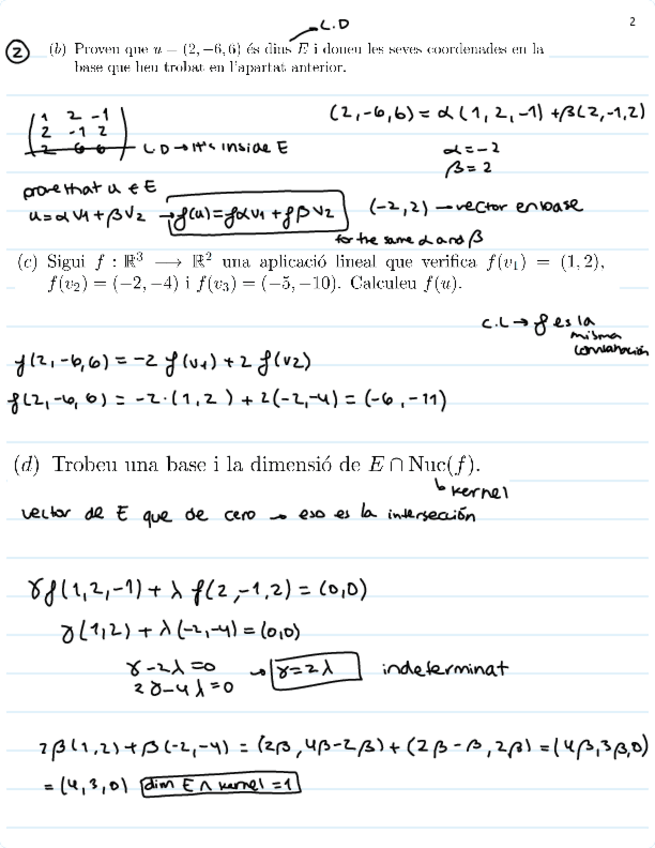 2
L.D
② (b) Proven que u = (2, −6, 6) és dins E i doneu les seves coordenades en la
base que heu trobat en l'apartat anterior.
(2,-6,6) = α(1,2,-1) + β(2,-1,2)
1 2 -1
2 -1 2
2 6 6
LD → It's inside E
α = -2
β = 2
prove that u ∈ E
u = αv1 + βv2 → f(u) = fαv1 + fβv2
(-2,2) → vector en base
for the same α and β
(c) Sigui f : ℝ³ ⟶ ℝ² una aplicació lineal que verifica f(v₁) = (1, 2),
f(v₂) = (−2, −4) i f(v₃) = (−5, −10). Calculeu f(u).
C.L → f es la
misma
combinación
f(2,-6,6) = -2 f(v1) + 2 f(v2)
f(2,-6,6) = -2·(1,2) + 2(-2,-4) = (-6,-11)
(d) Trobeu una base i la dimensió de E ∩ Nuc(f).
↳ kernel
vector de E que de cero → eso es la intersección
γf(1,2,-1) + λ f(2,-1,2) = (0,0)
γ(1,2) + λ(-2,-4) = (0,0)
γ-2λ = 0 → γ=2λ indeterminat
2γ-4λ = 0
2β(1,2) + β(-2,-4) = (2β, 4β-2β) + (2β-β, 2β) = (4β,3β,0)
= (4,3,0) dim E ∩ kernel = 1